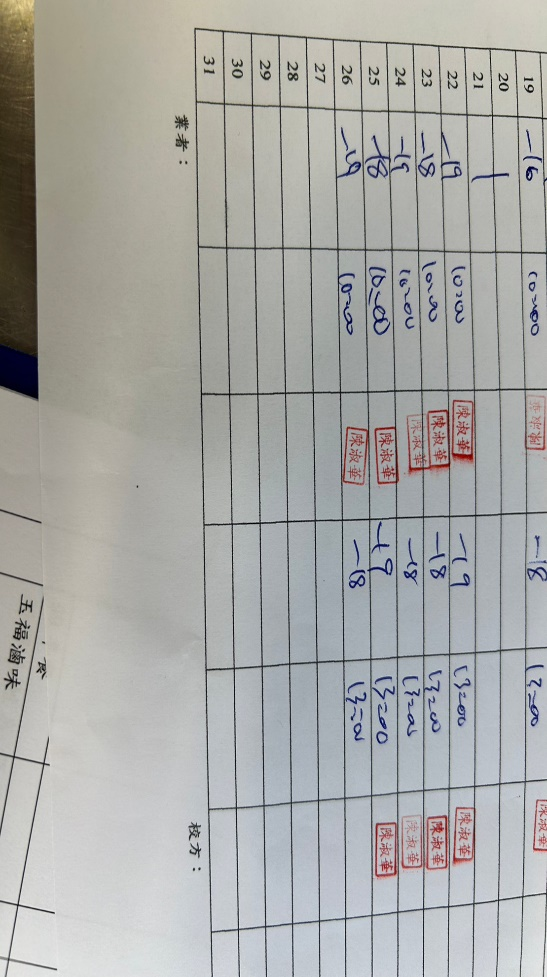 19 -16 10:00 -18 13:00
20
21
22 -19 10:00 陳淑華 -19 13:00 陳淑華
23 -18 10:00 陳淑華 -18 13:00 陳淑華
24 -19 10:00 陳淑華 -18 13:00 陳淑華
25 -18 10:00 陳淑華 -19 13:00 陳淑華
26 -19 10:00 陳淑華 -18 13:00
27
28
29
30
31
業者： 校方：
五福滷味